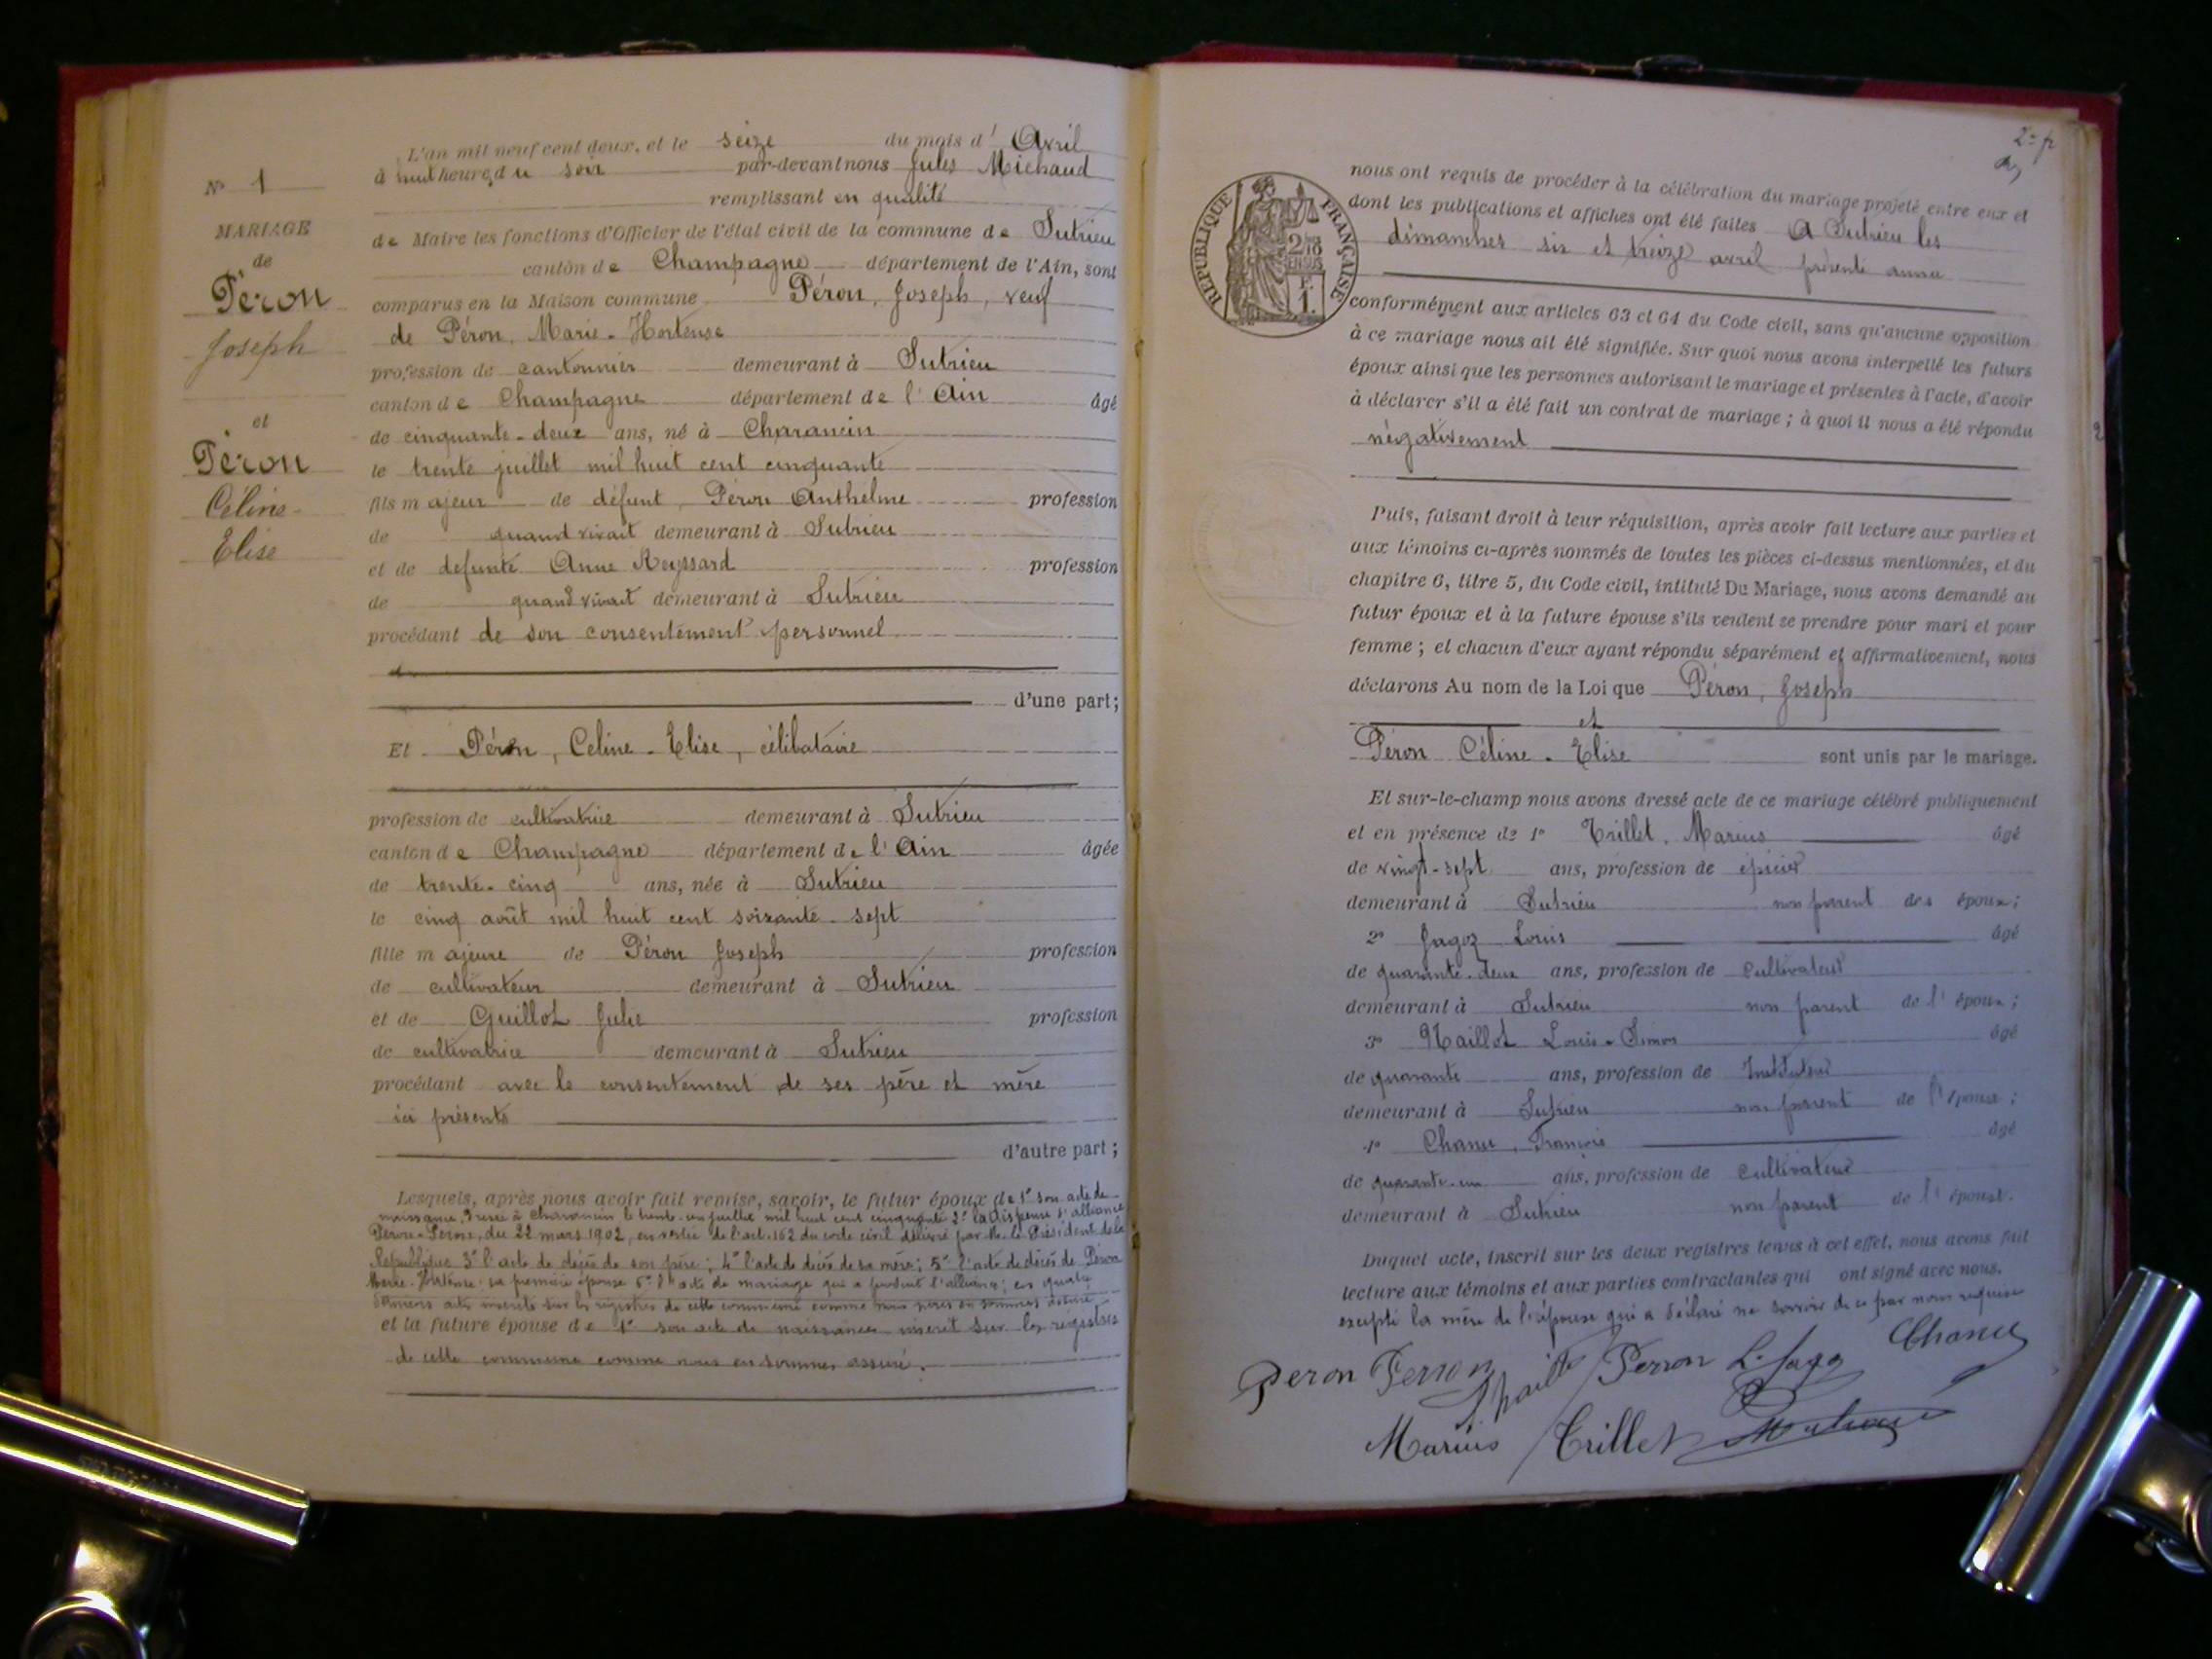 N° 1
MARIAGE
de
Péron
Joseph
et
Péron
Céline-
Elise
L'an mil neuf cent deux, et le seize du mois d' Avril
à huit heures du soir par-devant nous Jules Michaud
remplissant en qualité
de Maire les fonctions d'Officier de l'état civil de la commune de Sutrieu
canton de Champagne département de l'Ain, sont
comparus en la Maison commune Péron, Joseph, veuf
de Péron, Marie-Hortense
profession de cantonnier demeurant à Sutrieu
canton de Champagne département de l'Ain âgé
de cinquante-deux ans, né à Charancin
le trente juillet mil huit cent cinquante
fils majeur de défunt Péron Anthelme profession
de quand vivait demeurant à Sutrieu
et de défunte Anne Reyssard profession
de quand vivait demeurant à Sutrieu
procédant de son consentement personnel
d'une part;
Et Péron, Celine-Elise, célibataire
profession de cultivatrice demeurant à Sutrieu
canton de Champagne département de l'Ain âgée
de trente-cinq ans, née à Sutrieu
le cinq août mil huit cent soixante-sept
fille majeure de Péron Joseph profession
de cultivateur demeurant à Sutrieu
et de Guillot Julie profession
de cultivatrice demeurant à Sutrieu
procédant avec le consentement de ses père et mère
ici présents
d'autre part;
Lesquels, après nous avoir fait remise, savoir, le futur époux de 1° son acte de
naissance, dressé à Charancin le trente-un juillet mil huit cent cinquante 2° la dispense d'alliance
Péron-Péron, du 22 mars 1902, en vertu de l'art. 162 du code civil délivré par M. le Président de la
République 3° l'acte de décès de son père; 4° l'acte de décès de sa mère; 5° l'acte de décès de Péron
Marie-Hortense sa première épouse 6° l'acte de mariage qui a produit l'alliance; ces quatre
derniers actes inscrits sur les registres de cette commune comme nous en sommes assuré
et la future épouse de 1° son acte de naissance inscrit sur les registres
de cette commune comme nous en sommes assuré.
2e
nous ont requis de procéder à la célébration du mariage projeté entre eux et
dont les publications et affiches ont été faites A Sutrieu les
dimanches six et treize avril présente année
REPUBLIQUE FRANÇAISE
conformément aux articles 63 et 64 du Code civil, sans qu'aucune opposition
à ce mariage nous ait été signifiée. Sur quoi nous avons interpellé les futurs
époux ainsi que les personnes autorisant le mariage et présentes à l'acte, d'avoir
à déclarer s'il a été fait un contrat de mariage; à quoi il nous a été répondu
négativement
Puis, faisant droit à leur réquisition, après avoir fait lecture aux parties et
aux témoins ci-après nommés de toutes les pièces ci-dessus mentionnées, et du
chapitre 6, titre 5, du Code civil, intitulé Du Mariage, nous avons demandé au
futur époux et à la future épouse s'ils veulent se prendre pour mari et pour
femme; et chacun d'eux ayant répondu séparément et affirmativement, nous
déclarons Au nom de la Loi que Péron, Joseph
et
Péron Céline-Elise sont unis par le mariage.
Et sur-le-champ nous avons dressé acte de ce mariage célébré publiquement
et en présence de 1° Trillet, Marius âgé
de vingt-sept ans, profession de épicier
demeurant à Sutrieu non parent des époux;
2° Jagoz Louis âgé
de quarante-deux ans, profession de cultivateur
demeurant à Sutrieu non parent de l'époux;
3° Maillot Louis-Simon âgé
de quarante ans, profession de Instituteur
demeurant à Sutrieu non parent de l'épouse;
4° Chanu, François âgé
de quarante-un ans, profession de cultivateur
demeurant à Sutrieu non parent de l'épouse.
Duquel acte, inscrit sur les deux registres tenus à cet effet, nous avons fait
lecture aux témoins et aux parties contractantes qui ont signé avec nous.
excepté la mère de l'épouse qui a déclaré ne savoir de ce par nous requise
Peron Perron Perron L. Jagoz Chanu
Marius Trillet